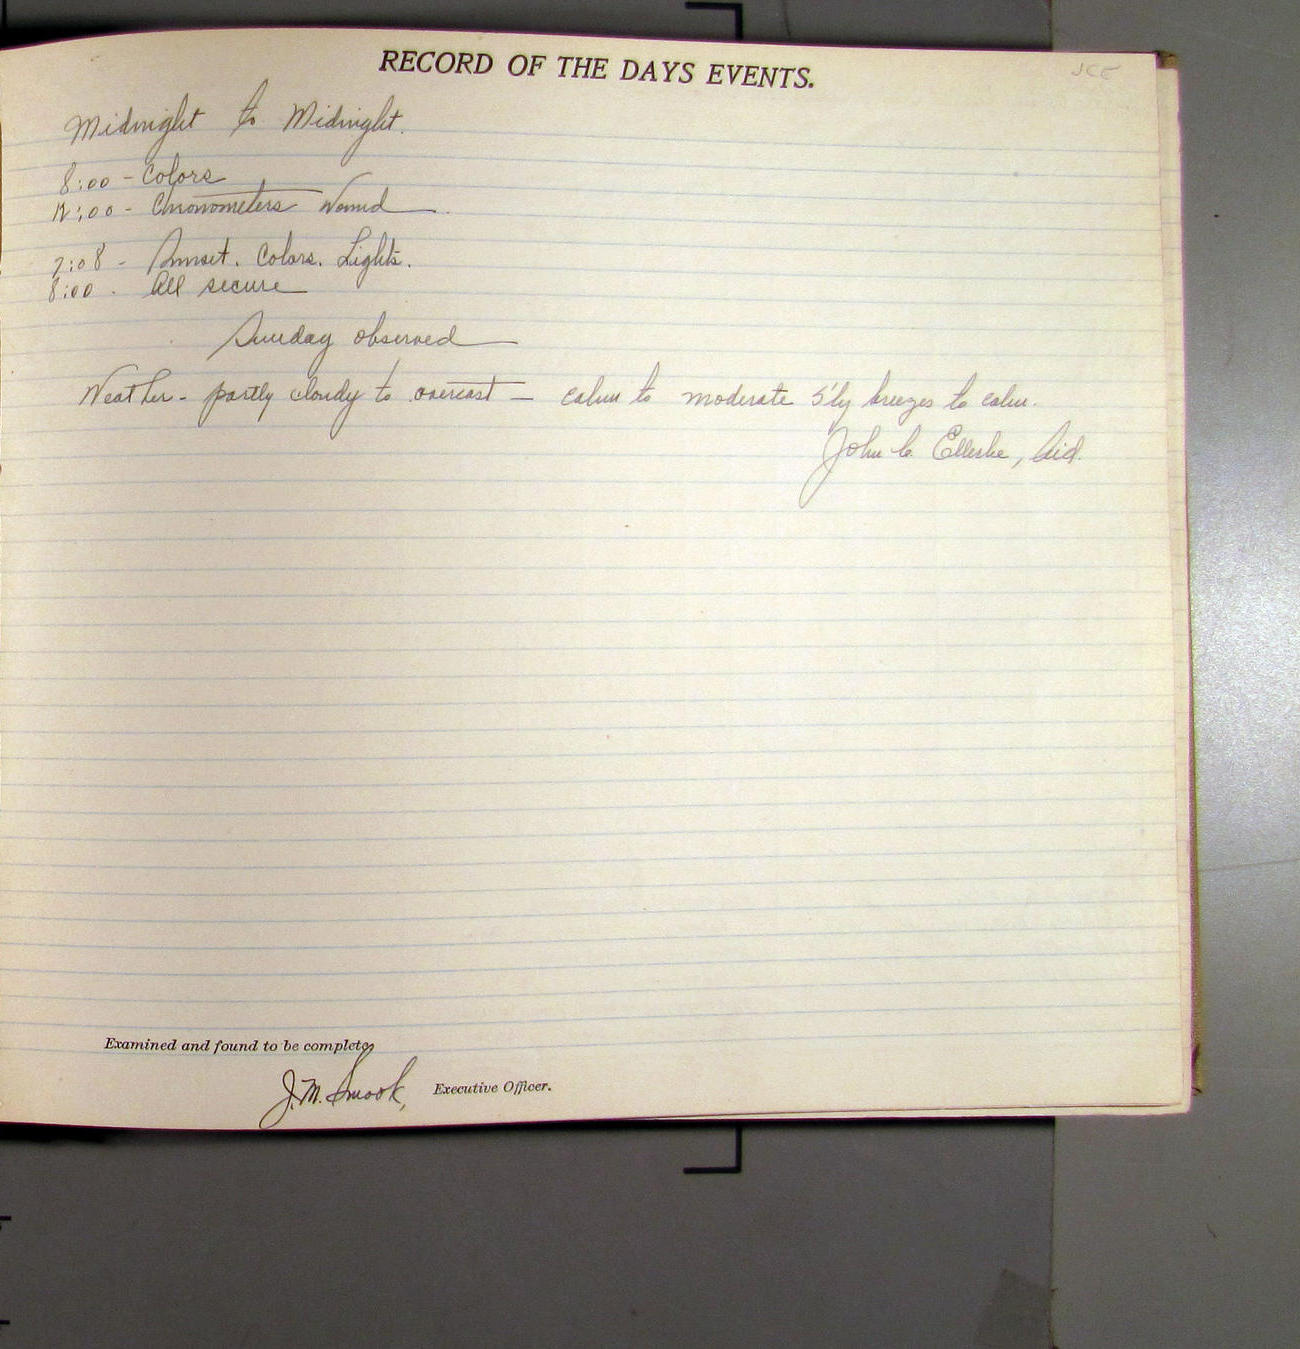 RECORD OF THE DAYS EVENTS.
JCE
Midnight to Midnight.
8:00 - Colors
12:00 - Chronometers Wound
7:08 - Sunset. Colors. Lights.
8:00 - All secure
Sunday observed
Weather - partly cloudy to overcast - calm to moderate S'ly breezes to calm.
John C. Ellerbe, Aid.
Examined and found to be complete,
J.M. Smook, Executive Officer.